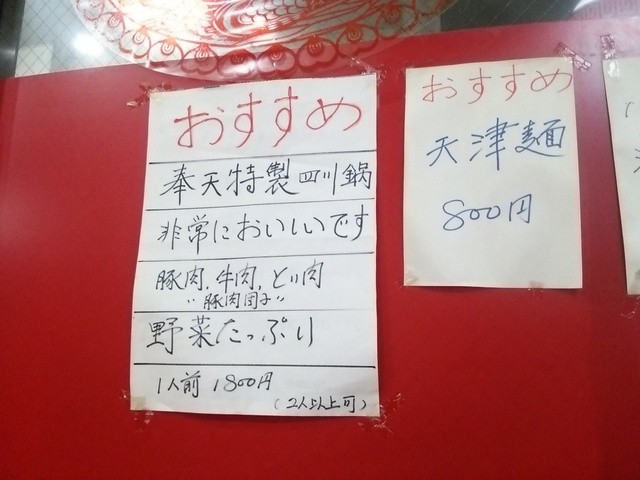 おすすめ
奉天特製四川鍋
非常においしいです
豚肉,牛肉,とり肉
"豚肉団子"
野菜たっぷり
1人前 1800円
(2人以上可)
おすすめ
天津麺
800円